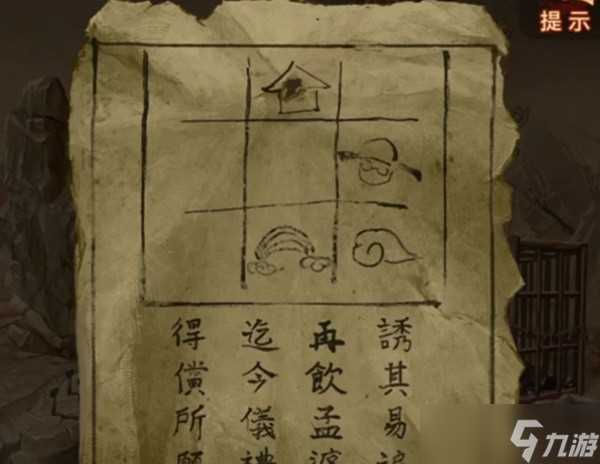 提示
誘其易
再飲孟婆
迄今儀禮
得償所願
九游